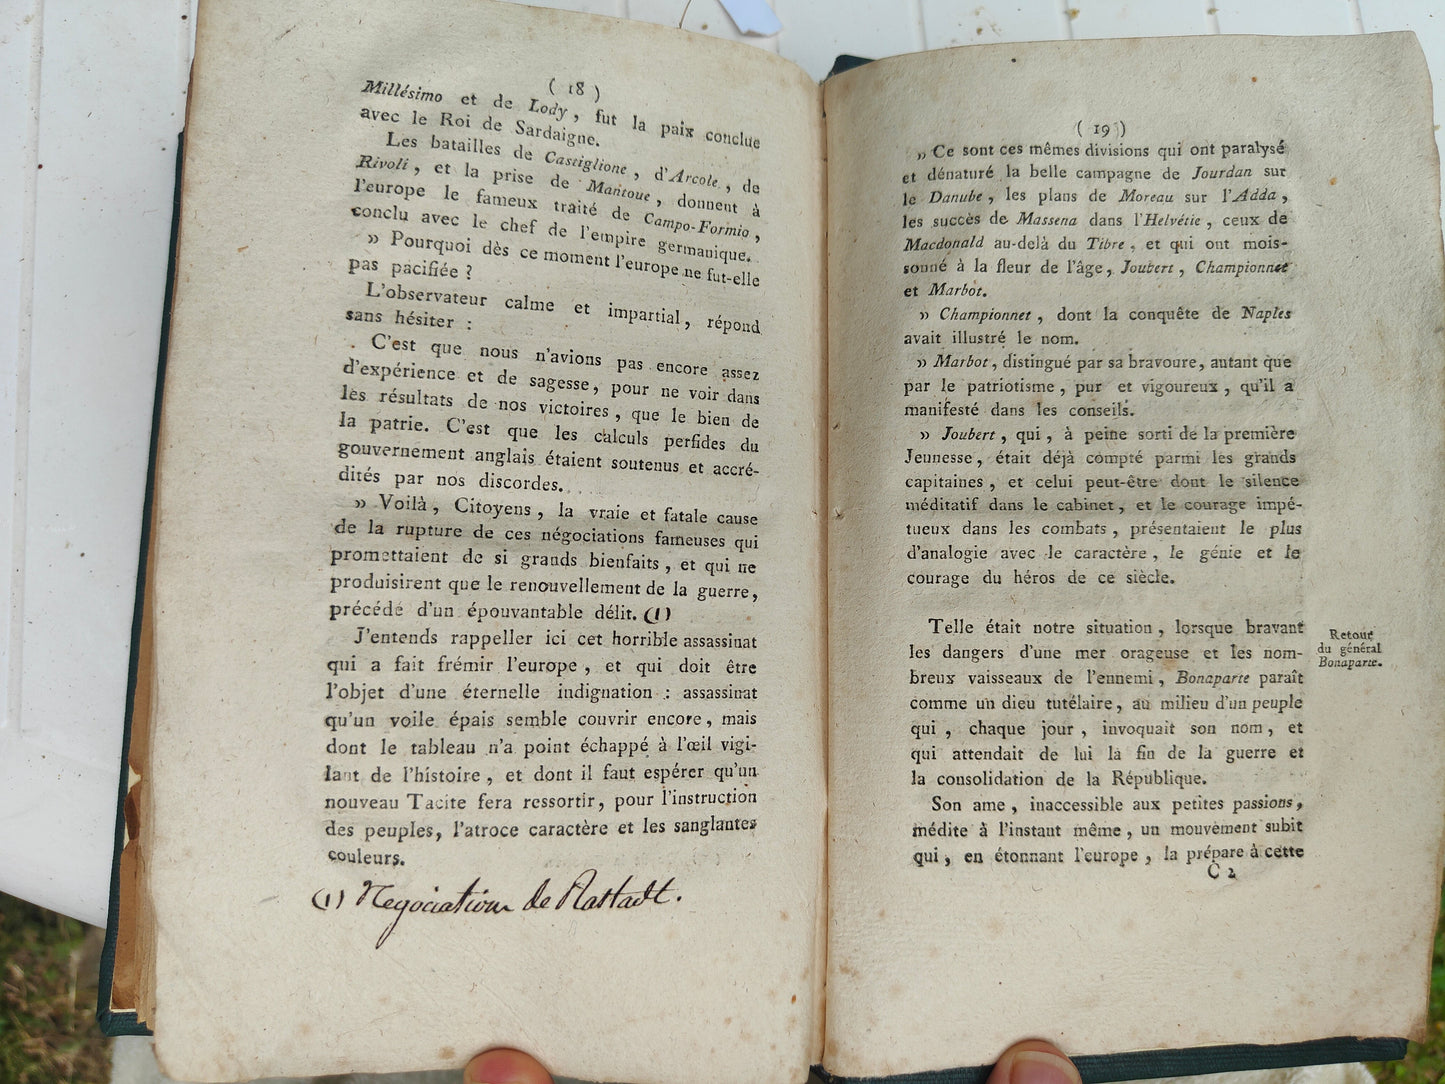 ( 18 )
Millésimo et de Lody, fut la paix conclue
avec le Roi de Sardaigne.
Les batailles de Castiglione, d'Arcole, de
Rivoli, et la prise de Mantoue, donnent à
l'europe le fameux traité de Campo-Formio,
conclu avec le chef de l'empire germanique.
» Pourquoi dès ce moment l'europe ne fut-elle
pas pacifiée ?
L'observateur calme et impartial, répond
sans hésiter :
C'est que nous n'avions pas encore assez
d'expérience et de sagesse, pour ne voir dans
les résultats de nos victoires, que le bien de
la patrie. C'est que les calculs perfides du
gouvernement anglais étaient soutenus et accré-
dités par nos discordes.
» Voilà, Citoyens, la vraie et fatale cause
de la rupture de ces négociations fameuses qui
promettaient de si grands bienfaits, et qui ne
produisirent que le renouvellement de la guerre,
précédé d'un épouvantable délit. (1)
J'entends rappeller ici cet horrible assassinat
qui a fait frémir l'europe, et qui doit être
l'objet d'une éternelle indignation : assassinat
qu'un voile épais semble couvrir encore, mais
dont le tableau n'a point échappé à l'œil vigi-
lant de l'histoire, et dont il faut espérer qu'un
nouveau Tacite fera ressortir, pour l'instruction
des peuples, l'atroce caractère et les sanglantes
couleurs.
(1) Negociation de Rastadt.
( 19 )
» Ce sont ces mêmes divisions qui ont paralysé
et dénaturé la belle campagne de Jourdan sur
le Danube, les plans de Moreau sur l'Adda,
les succès de Massena dans l'Helvétie, ceux de
Macdonald au-delà du Tibre, et qui ont mois-
sonné à la fleur de l'âge, Joubert, Championnet
et Marbot.
» Championnet, dont la conquête de Naples
avait illustré le nom.
» Marbot, distingué par sa bravoure, autant que
par le patriotisme, pur et vigoureux, qu'il a
manifesté dans les conseils.
» Joubert, qui, à peine sorti de la première
Jeunesse, était déjà compté parmi les grands
capitaines, et celui peut-être dont le silence
méditatif dans le cabinet, et le courage impé-
tueux dans les combats, présentaient le plus
d'analogie avec le caractère, le génie et le
courage du héros de ce siècle.
Telle était notre situation, lorsque bravant
les dangers d'une mer orageuse et les nom-
breux vaisseaux de l'ennemi, Bonaparte paraît
comme un dieu tutélaire, au milieu d'un peuple
qui, chaque jour, invoquait son nom, et
qui attendait de lui la fin de la guerre et
la consolidation de la République.
Retour
du général
Bonaparte.
Son ame, inaccessible aux petites passions,
médite à l'instant même, un mouvement subit
qui, en étonnant l'europe, la prépare à cette
C 2